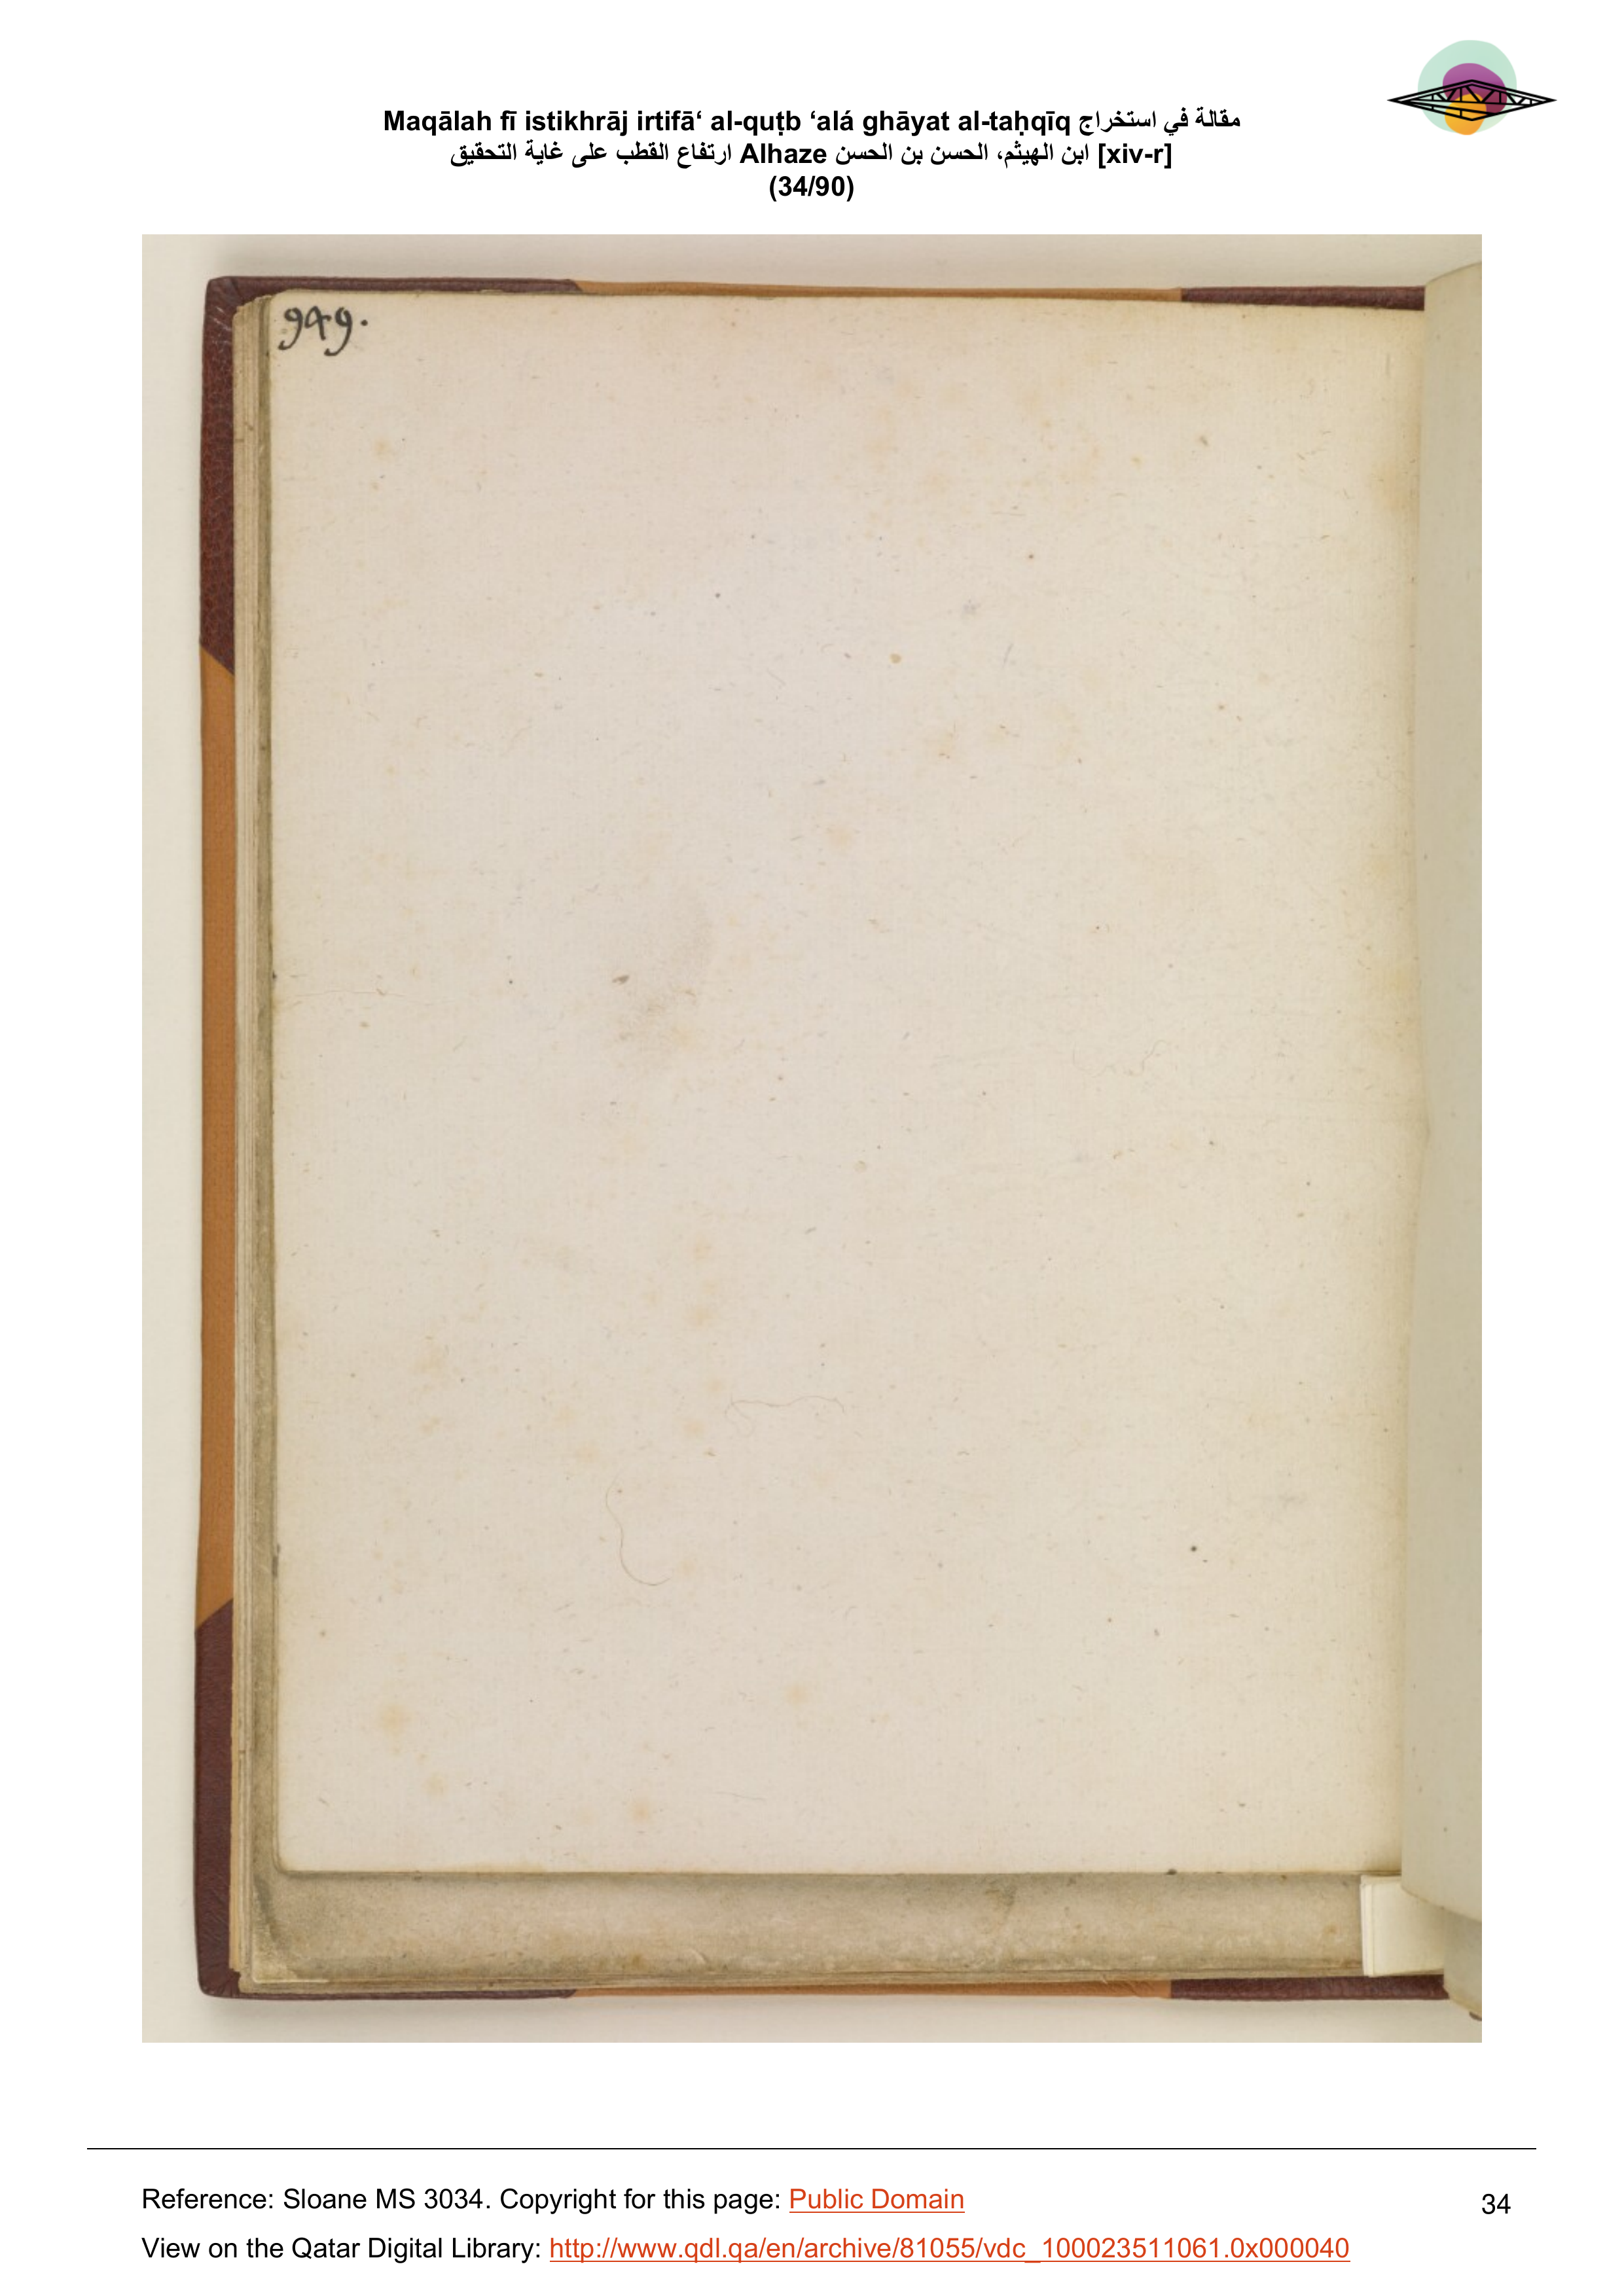 Maqālah fī istikhrāj irtifā‘ al-quṭb ‘alá ghāyat al-taḥqīq مقالة في استخراج
ارتفاع القطب على غاية التحقيق Alhaze ابن الهيثم، الحسن بن الحسن [xiv-r]
(34/90)
949.
Reference: Sloane MS 3034. Copyright for this page: Public Domain
34
View on the Qatar Digital Library: http://www.qdl.qa/en/archive/81055/vdc_100023511061.0x000040